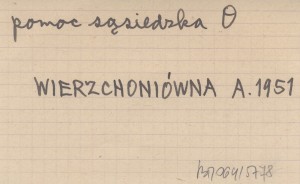 pomoc sąsiedzka O
WIERZCHONIÓWNA A. 1951